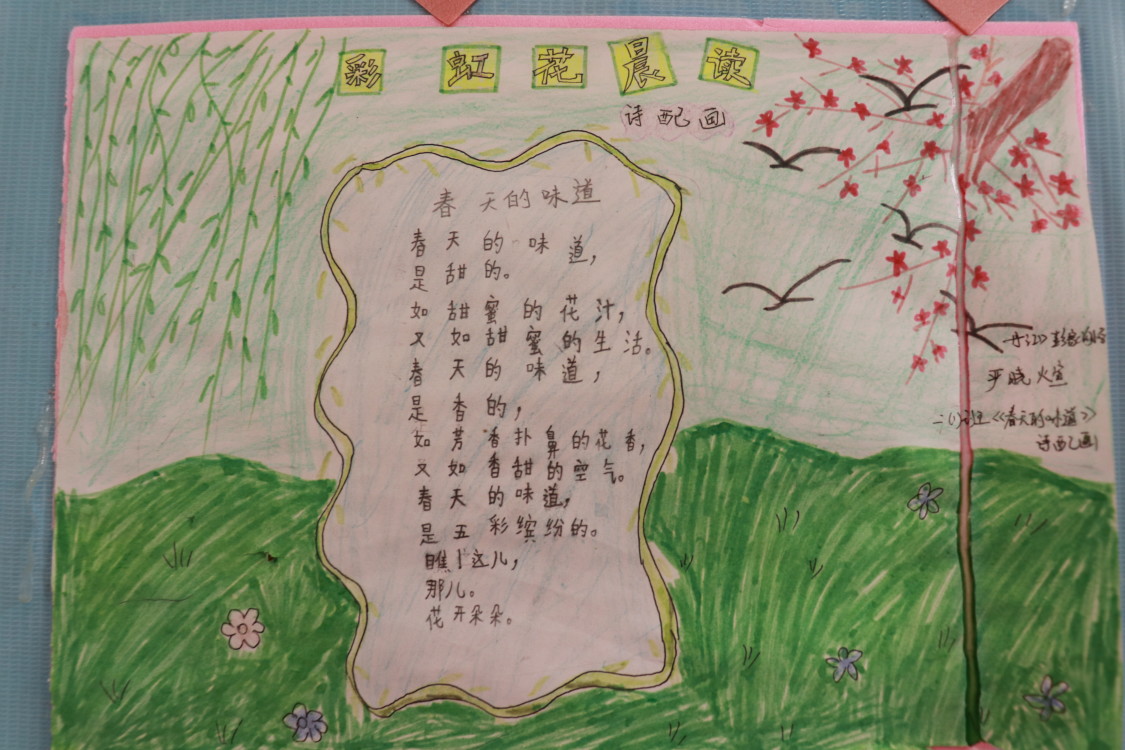 彩虹花晨读
诗配画
春天的味道
春天的味道,
是甜的。
如甜蜜的花汁,
又如甜蜜的生活。
春天的味道,
是香的,
如芳香扑鼻的花香,
又如香甜的空气。
春天的味道,
是五彩缤纷的。
瞧!这儿,
那儿。
花开朵朵。
严晓煊
二(1)班《春天的味道》
诗配画